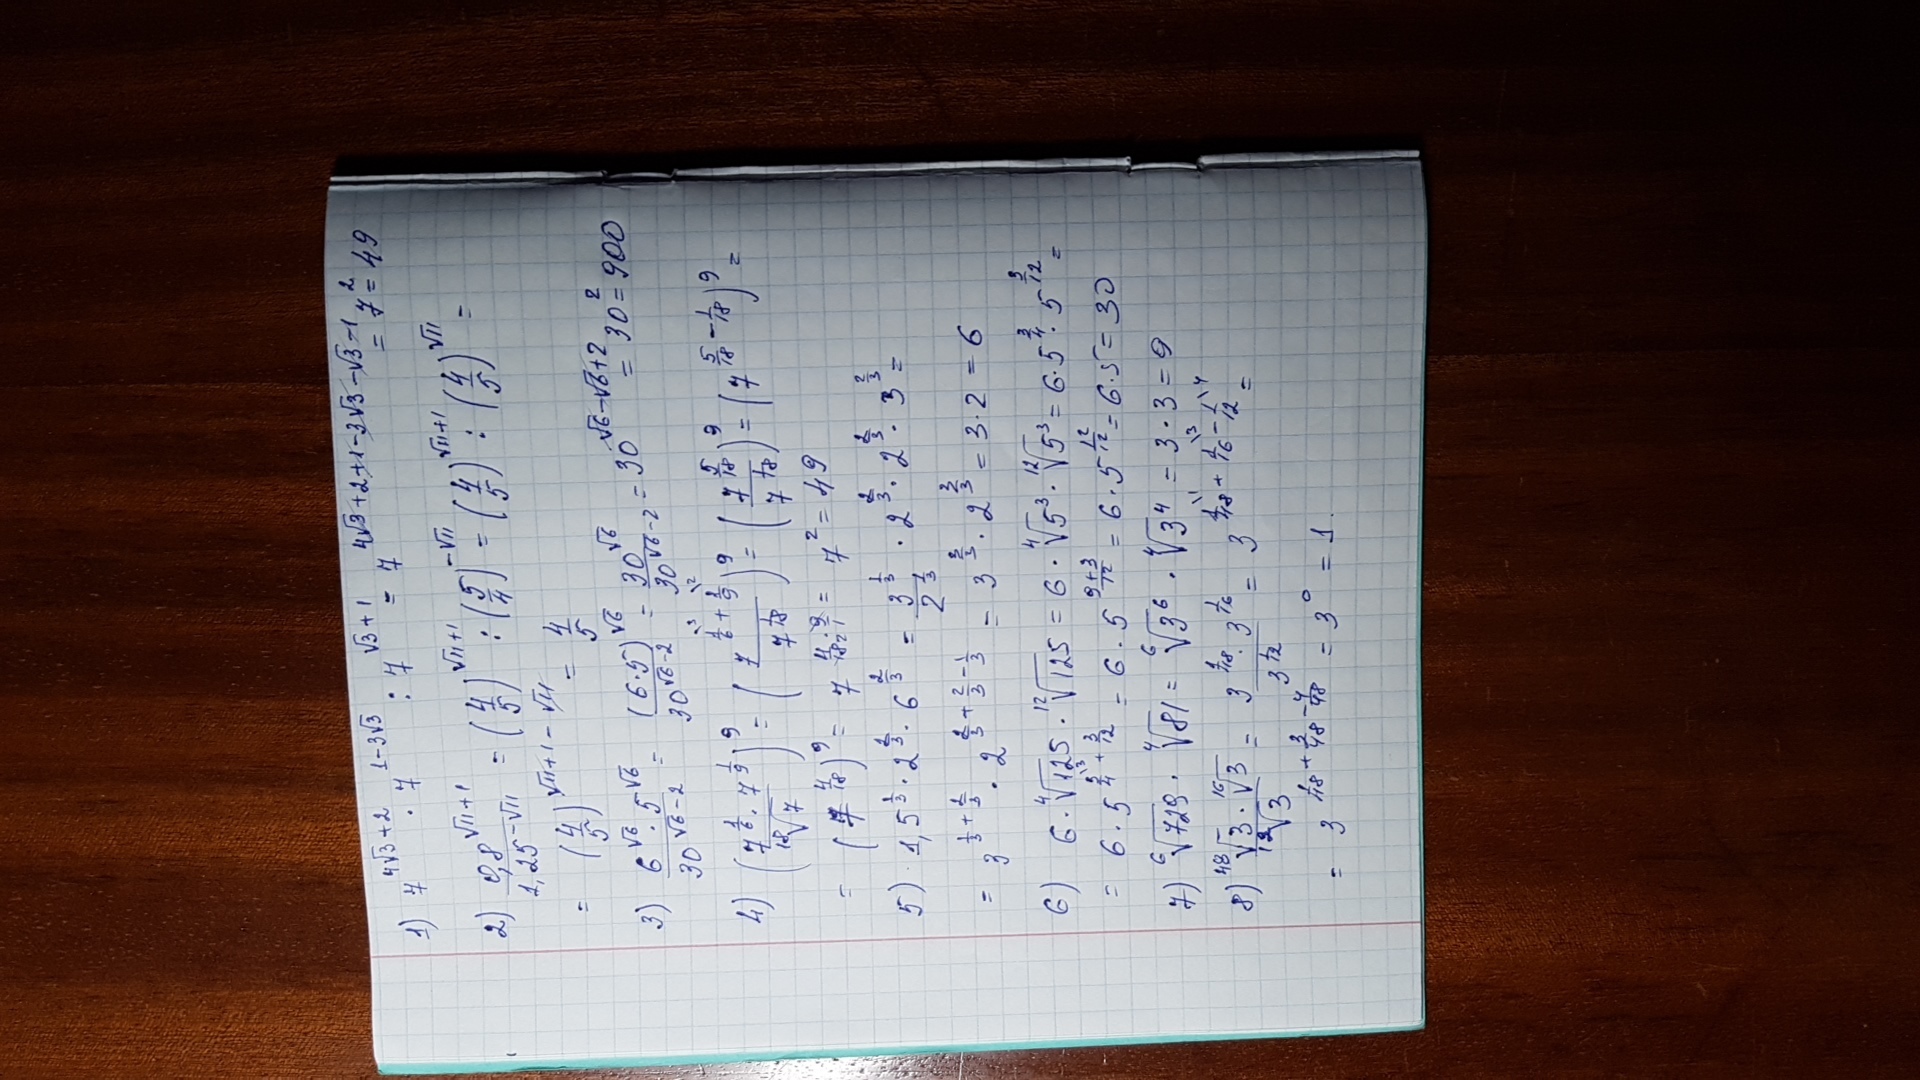 1) 7^(4√3+2) · 7^(1-3√3) : 7^(√3+1) = 7^(4√3+2+1-3√3-√3-1) = 7^2 = 49
2) 0,8^(√11+1) / 1,25^(-√11) = (4/5)^(√11+1) : (5/4)^(-√11) = (4/5)^(√11+1) : (4/5)^(√11) =
= (4/5)^(√11+1-√11) = 4/5
3) 6^√6 · 5^√6 / 30^(√6-2) = (6·5)^√6 / 30^(√6-2) = 30^√6 / 30^(√6-2) = 30^(√6-√6+2) = 30^2 = 900
4) (7^(1/6) · 7^(1/9) / ¹⁸√7)^9 = (7^(1/6\3 + 1/9\2) / 7^(1/18))^9 = (7^(5/18) / 7^(1/18))^9 = (7^(5/18 - 1/18))^9 =
= (7^(4/18))^9 = 7^(4/18 · 9/1) = 7^2 = 49
5) 1,5^(1/3) · 2^(1/3) · 6^(2/3) = 3^(1/3) / 2^(1/3) · 2^(1/3) · 2^(2/3) · 3^(2/3) =
= 3^(1/3+2/3) · 2^(1/3+2/3-1/3) = 3^(3/3) · 2^(2/3) = 3·2 = 6
6) 6 · ⁴√125 · ¹²√125 = 6 · ⁴√5³ · ¹²√5³ = 6·5^(3/4) · 5^(3/12) =
= 6·5^(3/4\3 + 3/12) = 6·5^((9+3)/12) = 6·5^(12/12) = 6·5 = 30
7) ⁶√729 · ⁴√81 = ⁶√3⁶ · ⁴√3⁴ = 3·3 = 9
8) ⁴⁸√3 · ¹⁶√3 / ¹²√3 = 3^(1/48) · 3^(1/16) / 3^(1/12) = 3^(1/48\1 + 1/16\3 - 1/12\4) =
= 3^(1/48 + 3/48 - 4/48) = 3^0 = 1.